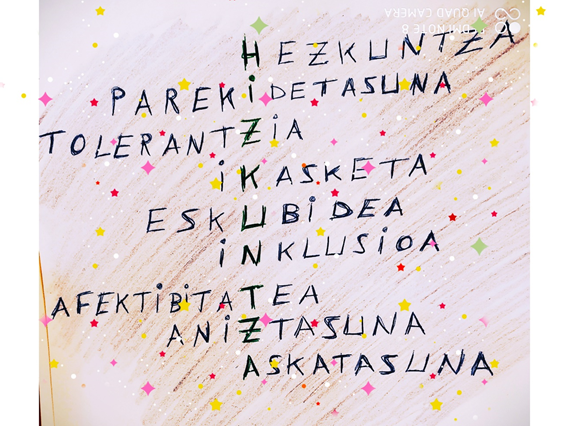 REDMI NOTE 8
AI QUAD CAMERA
HEZKUNTZA
PAREKiDETASUNA
TOLERANTZiA
iKASKETA
ESKUBiDEA
iNKLUSiOA
AFEKTiBiTATEA
ANiZTASUNA
ASKATASUNA